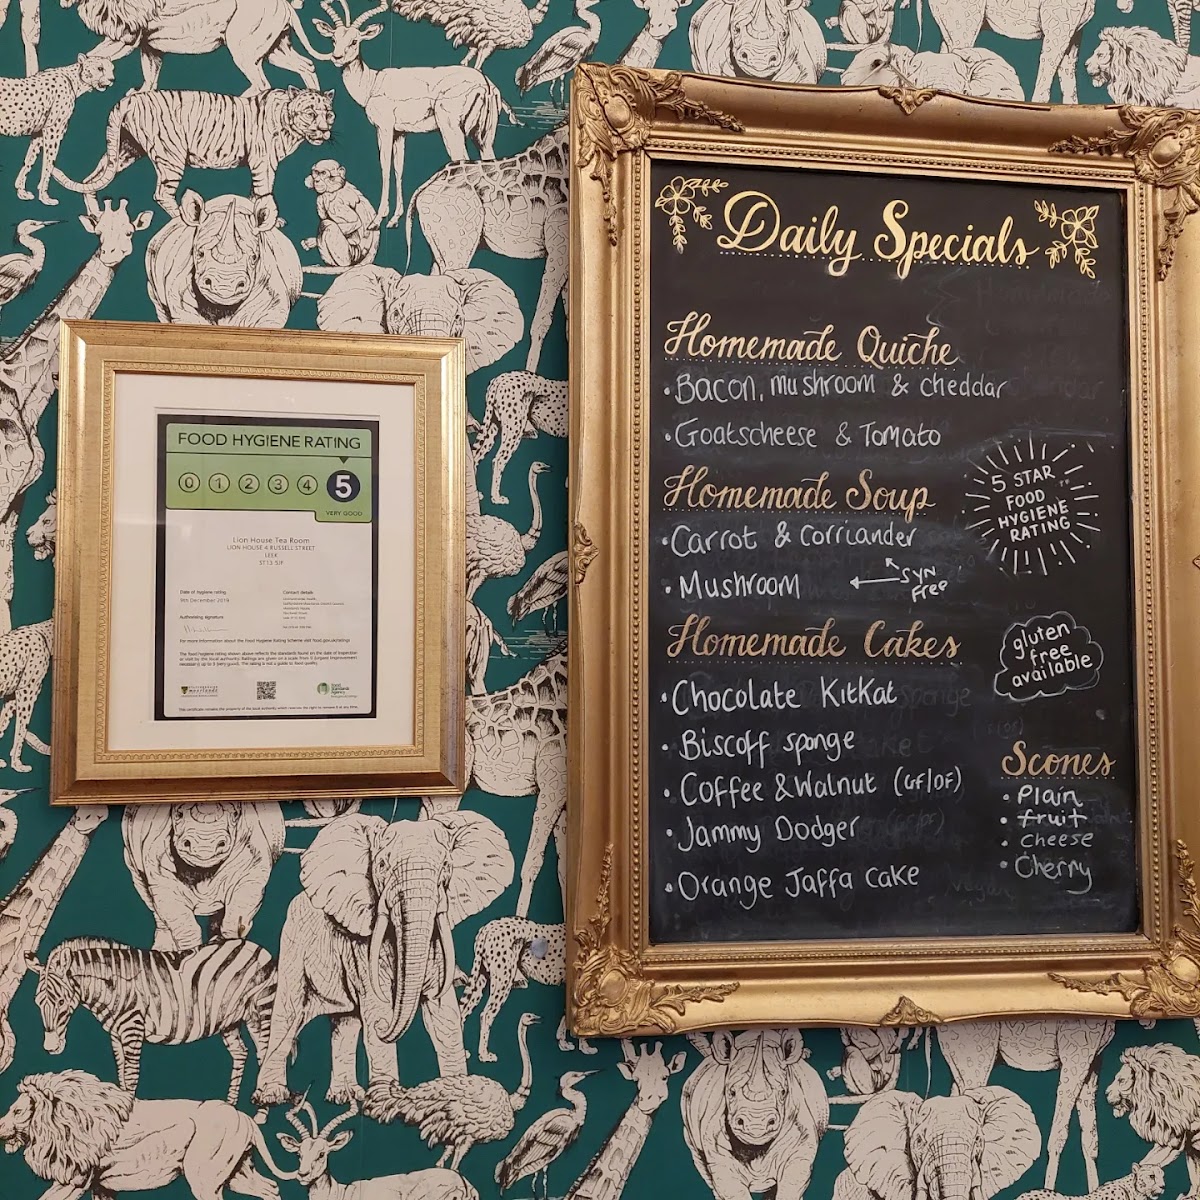 FOOD HYGIENE RATING
0 1 2 3 4 5
VERY GOOD
Lion House Tea Room
LION HOUSE 4 RUSSELL STREET
LEEK
ST13 5JF
Date of hygiene rating
Contact details
Authorising signature
For more information about the Food Hygiene Rating Scheme visit food.gov.uk/ratings
Food
Standards
Agency
Daily Specials
Homemade Quiche
• Bacon, mushroom & cheddar
• Goatscheese & Tomato
Homemade Soup
• Carrot & Corriander
• Mushroom
SYN
Free
Homemade Cakes
• Chocolate KitKat
• Biscoff sponge
• Coffee & Walnut (GF/DF)
• Jammy Dodger
• Orange Jaffa cake
5 STAR
FOOD
HYGIENE
RATING
gluten
free
available
Scones
• Plain
• fruit
• cheese
• Cherry